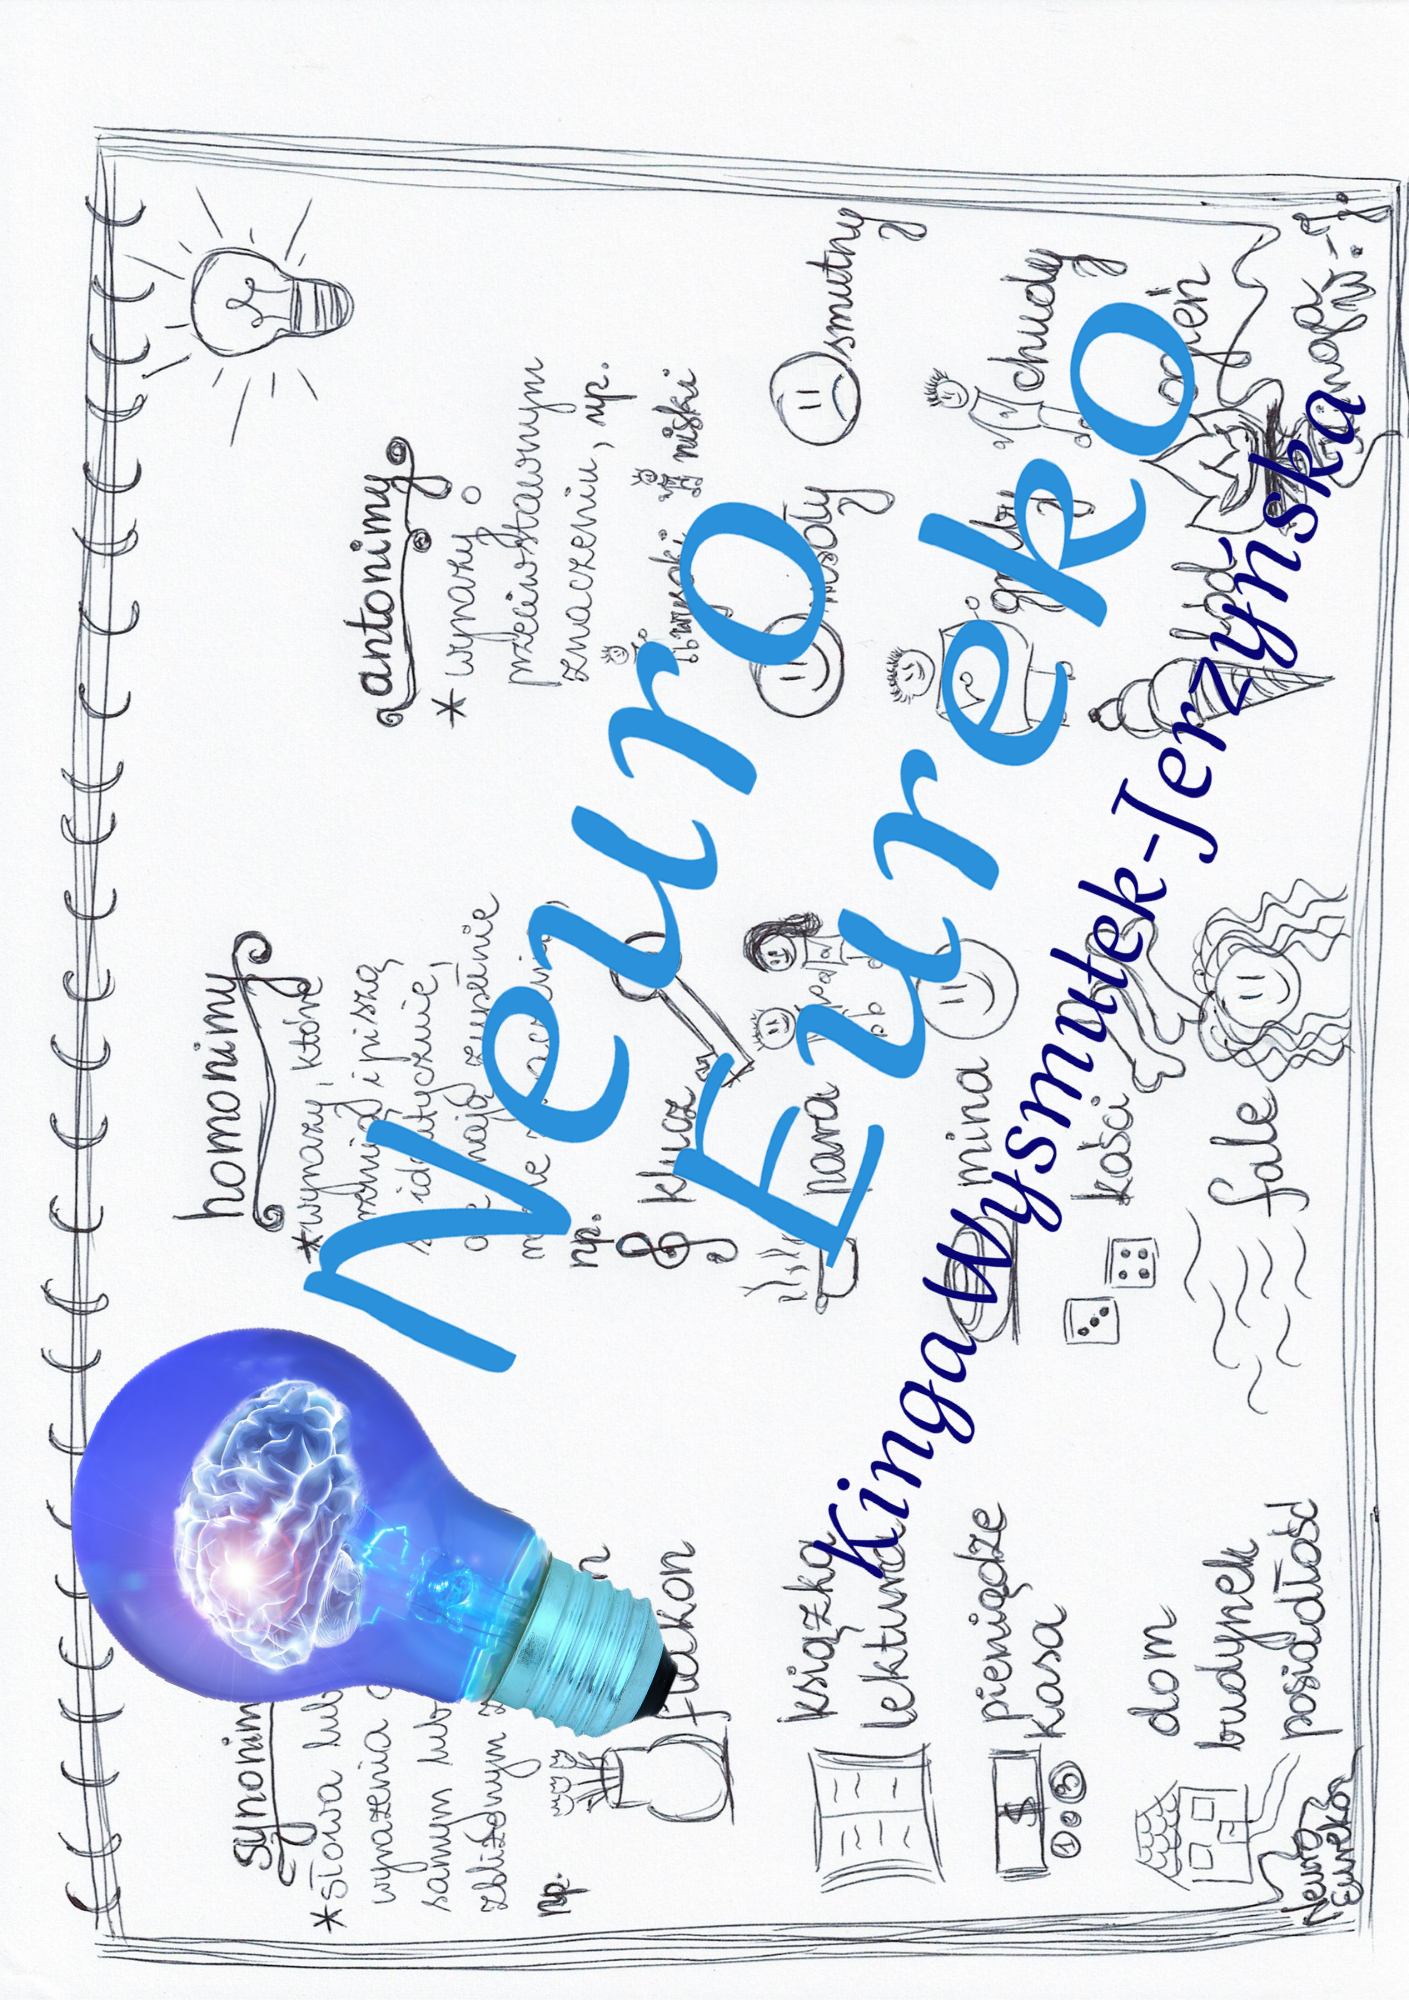 synonim
*słowa lub
wyrażenia o
samym lub
zbliżonym z
np.
flakon
książka
lektura
pieniądze
kasa
dom
budynek
posiadłość
Neuro
Eureko
homonimy
*wyrazy, które
i piszą
identycznie,
mają zupełnie
np.
klucz
para
mina
kości
fale
antonimy
*wyrazy o
przeciwstawnym
znaczeniu, np.
niski
smutny
chudy
Neuro
Eureko
Kinga Wysmutek-Jerzyńska